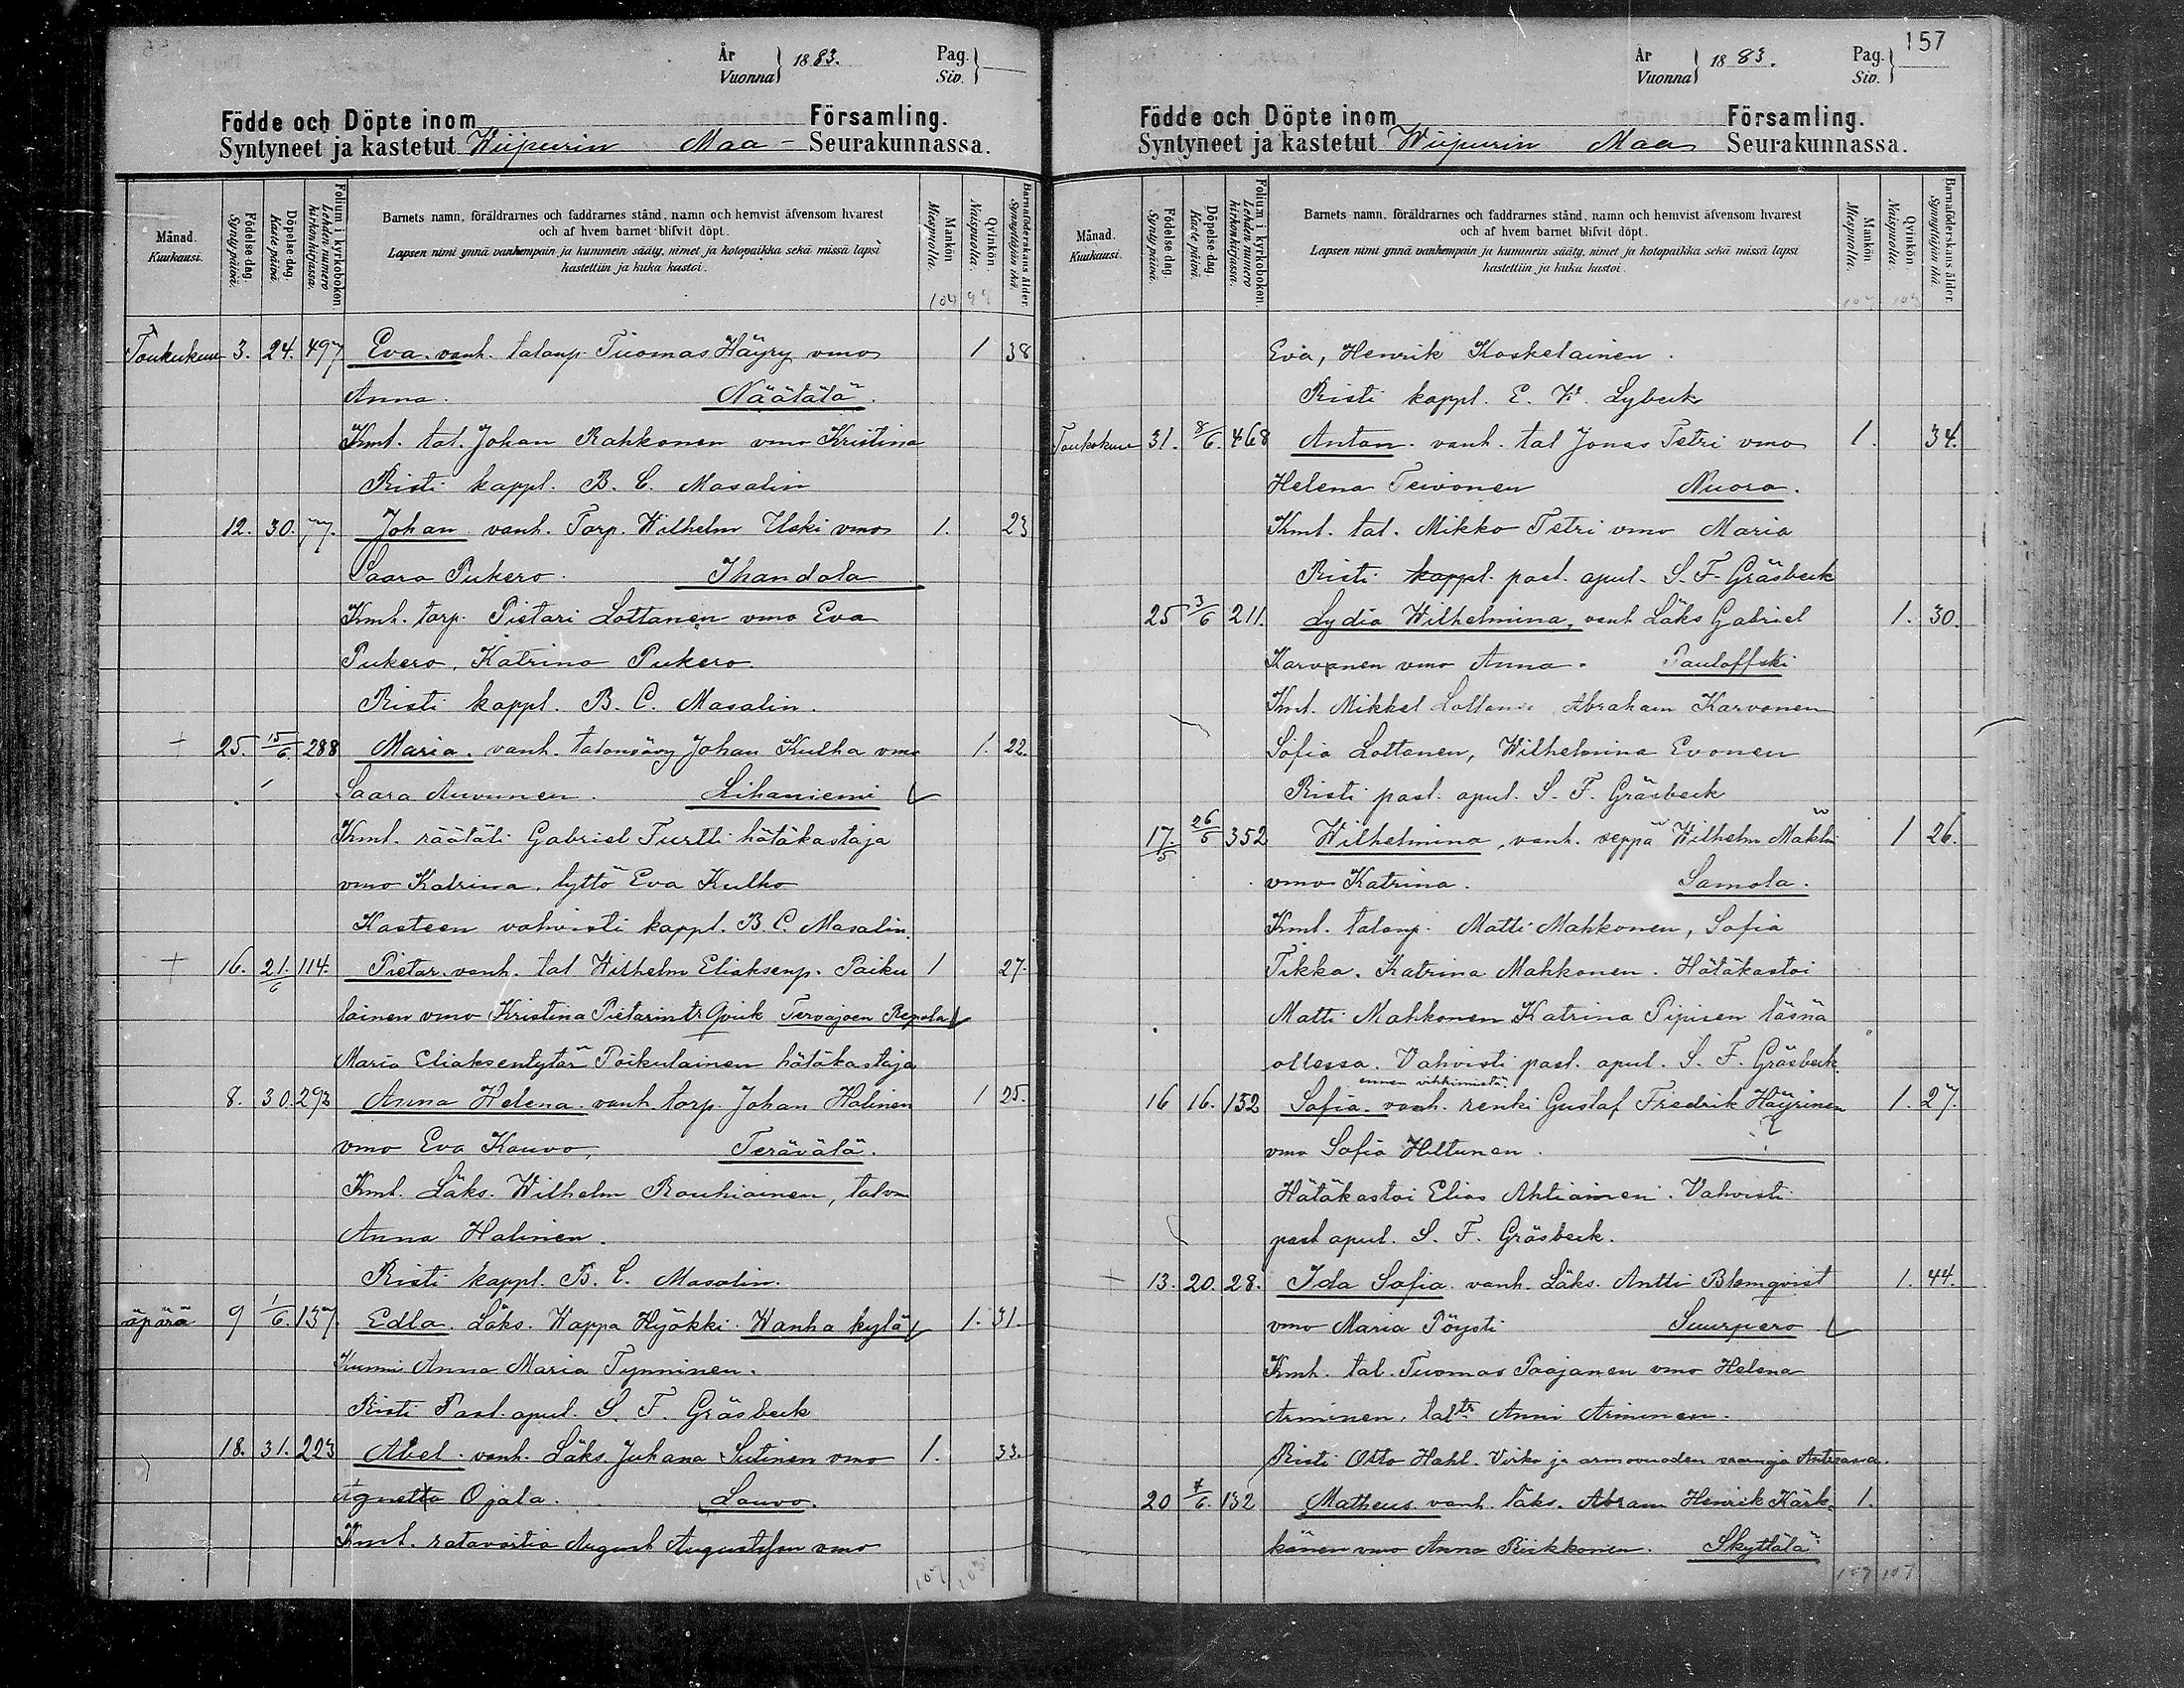 År
Vuonna } 1883.
Pag.
Siv.
Födde och Döpte inom Församling.
Syntyneet ja kastetut Wiipurin Maa- Seurakunnassa.
Månad.
Kuukausi.
Födelse-dag.
Syntypäivä.
Döpelse-dag.
Kastepäivä.
Folium i kyrkoboken.
Lehden numero kirkonkirjassa.
Barnets namn, föräldrarnes och faddrarnes stånd, namn och hemvist äfvensom hvarest
och af hvem barnet blifvit döpt.
Lapsen nimi ynnä vanhempain ja kummein sääty, nimet ja kotopaikka sekä missä lapsi
kastettiin ja kuka kastoi.
Mankön
Miespuolia.
Qvinkön
Naispuolia.
Barnaföderskans ålder.
Synnyttäjän ikä.
104 99
Toukukuu 3. 24. 497 Eva. vanh. talonp. Tuomas Häyry vmo 1 38
Anna. Näätälä.
Kmt. tal. Johan Rahkonen vmo Kristina
Risti kappl. B. C. Masalin
12. 30. 77. Johan vanh. Torp. Wilhelm Uski vmo 1. 23
Saara Pukero. Ihandala
Kmt. torp. Pietari Lottanen vmo Eva
Pukero, Katrina Pukero.
Risti kappl. B. C. Masalin.
25. 15/6. 288 Maria. vanh. talonpoig Johan Kulha vmo 1. 22.
Saara Auvunen. Lihaniemi
Kmt. räätäli Gabriel Turtti hätäkastaja
vmo Katrina, tyttö Eva Kulho
Kasteen vahvisti kappl. B. C. Masalin.
+ 16. 21./6 114. Pietar. vanh. tal Wilhelm Eliaksenp. Paiku 1 27.
lainen vmo Kristina Pietarintr Qvick Tervajoen Repola
Maria Eliaksentytär Poikulainen hätäkastaja
8. 30. 293 Anna Helena. vanh. torp. Johan Halinen 1 25.
vmo Eva Kauvo, Terävälä.
Kmt. Läks. Wilhelm Rouhiainen, talon
Anna Halinen.
Risti kappl. B. C. Masalin.
äpärä 9 1/6. 137. Edla. Läks. Wappa Hyökki. Wanha kylä 1. 31.
Kummi Anna Maria Tynninen.
Risti Past. apul. S. F. Gräsbeck
18. 31. 223 Abel. vanh. Läks. Juhana Sutinen vmo 1. 33.
Agnetta Ojala. Lauvo.
Kmt. ratavartia August Augustsson vmo
107 103
157
År
Vuonna } 1883.
Pag.
Siv.
Födde och Döpte inom Församling.
Syntyneet ja kastetut Wiipurin Maa Seurakunnassa.
Månad.
Kuukausi.
Födelse-dag.
Syntypäivä.
Döpelse-dag.
Kastepäivä.
Folium i kyrkoboken.
Lehden numero kirkonkirjassa.
Barnets namn, föräldrarnes och faddrarnes stånd, namn och hemvist äfvensom hvarest
och af hvem barnet blifvit döpt.
Lapsen nimi ynnä vanhempain ja kummein sääty, nimet ja kotopaikka sekä missä lapsi
kastettiin ja kuka kastoi.
Mankön
Miespuolia.
Qvinkön
Naispuolia.
Barnaföderskans ålder.
Synnyttäjän ikä.
107 103
Eva, Henrik Koskelainen.
Risti kappl. E. W. Lybeck
Toukokuu 31. 8/6. 468 Antan. vanh. tal Jonas Tetri vmo 1. 34.
Helena Teivonen Nuora.
Kmt. tal. Mikko Tetri vmo Maria
Risti kappl. past. apul. S. F. Gräsbeck
25 3/6 211. Lydia Wilhelmina, vanh Läks Gabriel 1. 30.
Karvonen vmo Anna. Pauloffski
Kmt. Mikkel Lottanen Abraham Karvonen
Sofia Lottanen, Wilhelmina Evonen
Risti past. apul. S. F. Gräsbeck
17./5 26/5 352 Wilhelmina, vanh. seppä Wilhelm Maklin 1 26.
vmo Katrina. Samola.
Kmt. talonp. Matti Mahkonen, Sofia
Tikka. Katrina Mahkonen. Hätäkastoi
Matti Mahkonen Katrina Pipisen läsnä
ollessa. Vahvisti past. apul. S. F. Gräsbeck
ennen vihkimistä.
16 16. 132 Sofia. vanh. renki Gustaf Fredrik Häyrinen 1. 27.
vmo Sofia Hiltunen.
Hätäkastoi Elias Ahtiainen. Vahvisti
past apul. S. F. Gräsbeck.
13. 20. 28. Ida Sofia. vanh. Läks. Antti Blomqvist 1. 44.
vmo Maria Pöysti Suurpero
Kmt. tal. Tuomas Paajanen vmo Helena
Arminen, taltr Anni Arminen.
Risti Otto Hahl. Virka ja armovuoden saarnaja Antreassa.
20 4/6. 132 Matheus vanh. läks. Abram Henrik Kärk- 1.
känen vmo Anna Pirkkonen. Skyttälä
107 107